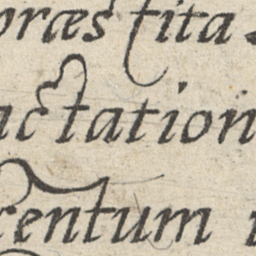 præstita
actation
centum